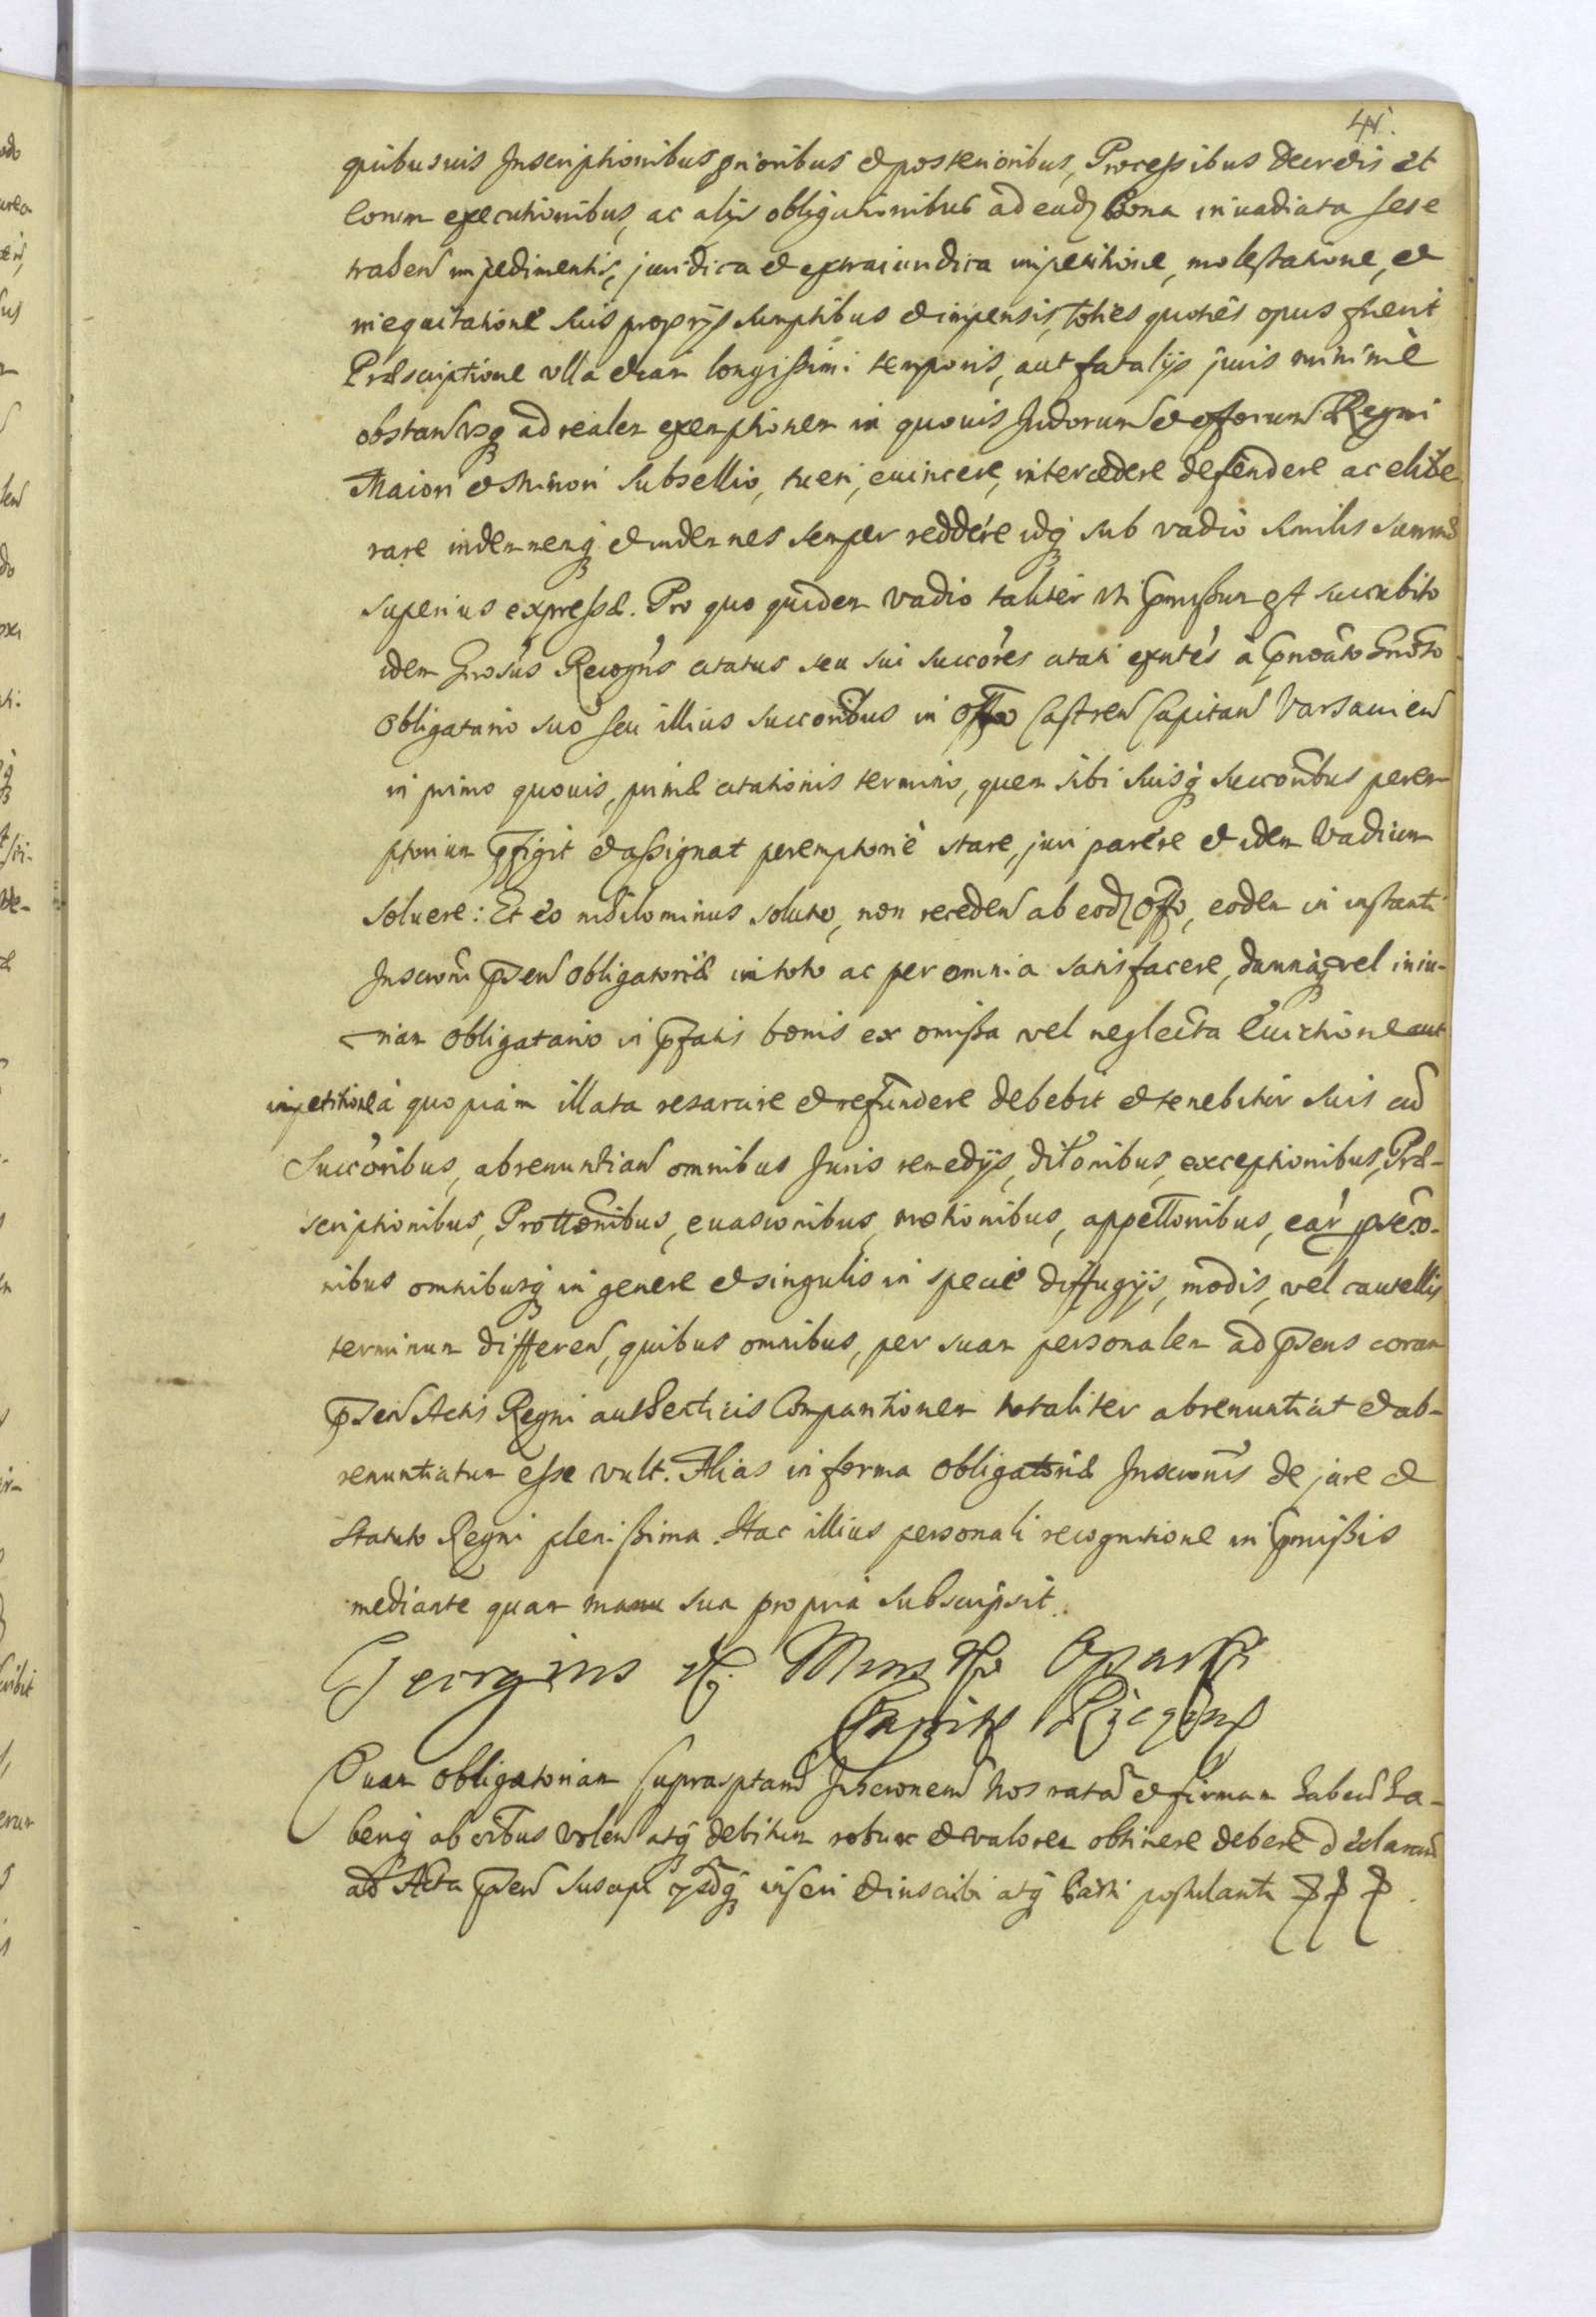 41.
quibusuis Inscriptionibus prioribus et posterioribus, Processibus decretis et
eorum executionibus, ac alijs obligationibus ad eadz Bona inuadiata sese
trahen impedimentis, juridica et extraiuridica impetitione, molestatione, et
inequitatione suis proprijs sumptibus et impensis, toties quoties opus fuerit
Præscriptione vlla etiam longissimi temporis, aut fatalijs juris minimè
obstan vsq ad realem exemptionem in quouis Judiorum et offorum Regni
Maiori et Minori Subsellio, tueri, euincere, intercedere defendere ac elibe
rare indemnemq et indemnes semper reddere idq sub vadio similis summæ
superius expressæ. Pro quo quidem vadio taliter vti pmissum est succubito
idem Gnosus Recogns citatus seu sui succores citati exntes à pnoato Gnoso
Obligatario suo seu illius succoribus in Offo Castren Capitan Varsauien
in primo quouis, primæ citationis termino, quem sibi suisq succoribus perem
ptorium pfigit et assignat peremptoriè stare, juri parere et idem Vadium
soluere: Et eo nihilominus soluto, non receden ab eodz Offo, eodem in instanti
Inscroni psen obligatoriæ in toto ac per omnia satisfacere, damnaq vel iniu-
riam obligatario in pfatis bonis ex omissa vel neglecta Euictione aut
impetitione à quopiam illata resarcire et refundere debebit et tenebitur suis cum
Succoribus, abrenuntian omnibus Juris remedijs, dilonibus, exceptionibus, Præ-
scriptionibus, Prottonibus, euasionibus, motionibus, appellonibus, ear pseco-
nibus omnibusq in genere et singulis in specie diffugijs, modis, vel cautellis
terminum differen, quibus omnibus, per suam personalem ad psens coram
psen Actis Regni authenticis Comparitionem totaliter abrenuntiat et ab-
renuntiatum esse vult. Alias in forma obligatoriæ Inscronis de jure et
Statuto Regni plenissima. Hac illius personali recognitione in pmissis
mediante quam manu sua propria subscripsit.
Georgius
Quam obligatoriam suprasptam Inscronem Nos ratam et firmam haben ha-
beriq ab oibus volen atq debitum robur et valorem obtinere debere declaran
ad Acta psen suscipi ijsdq inseri et inscribi atq